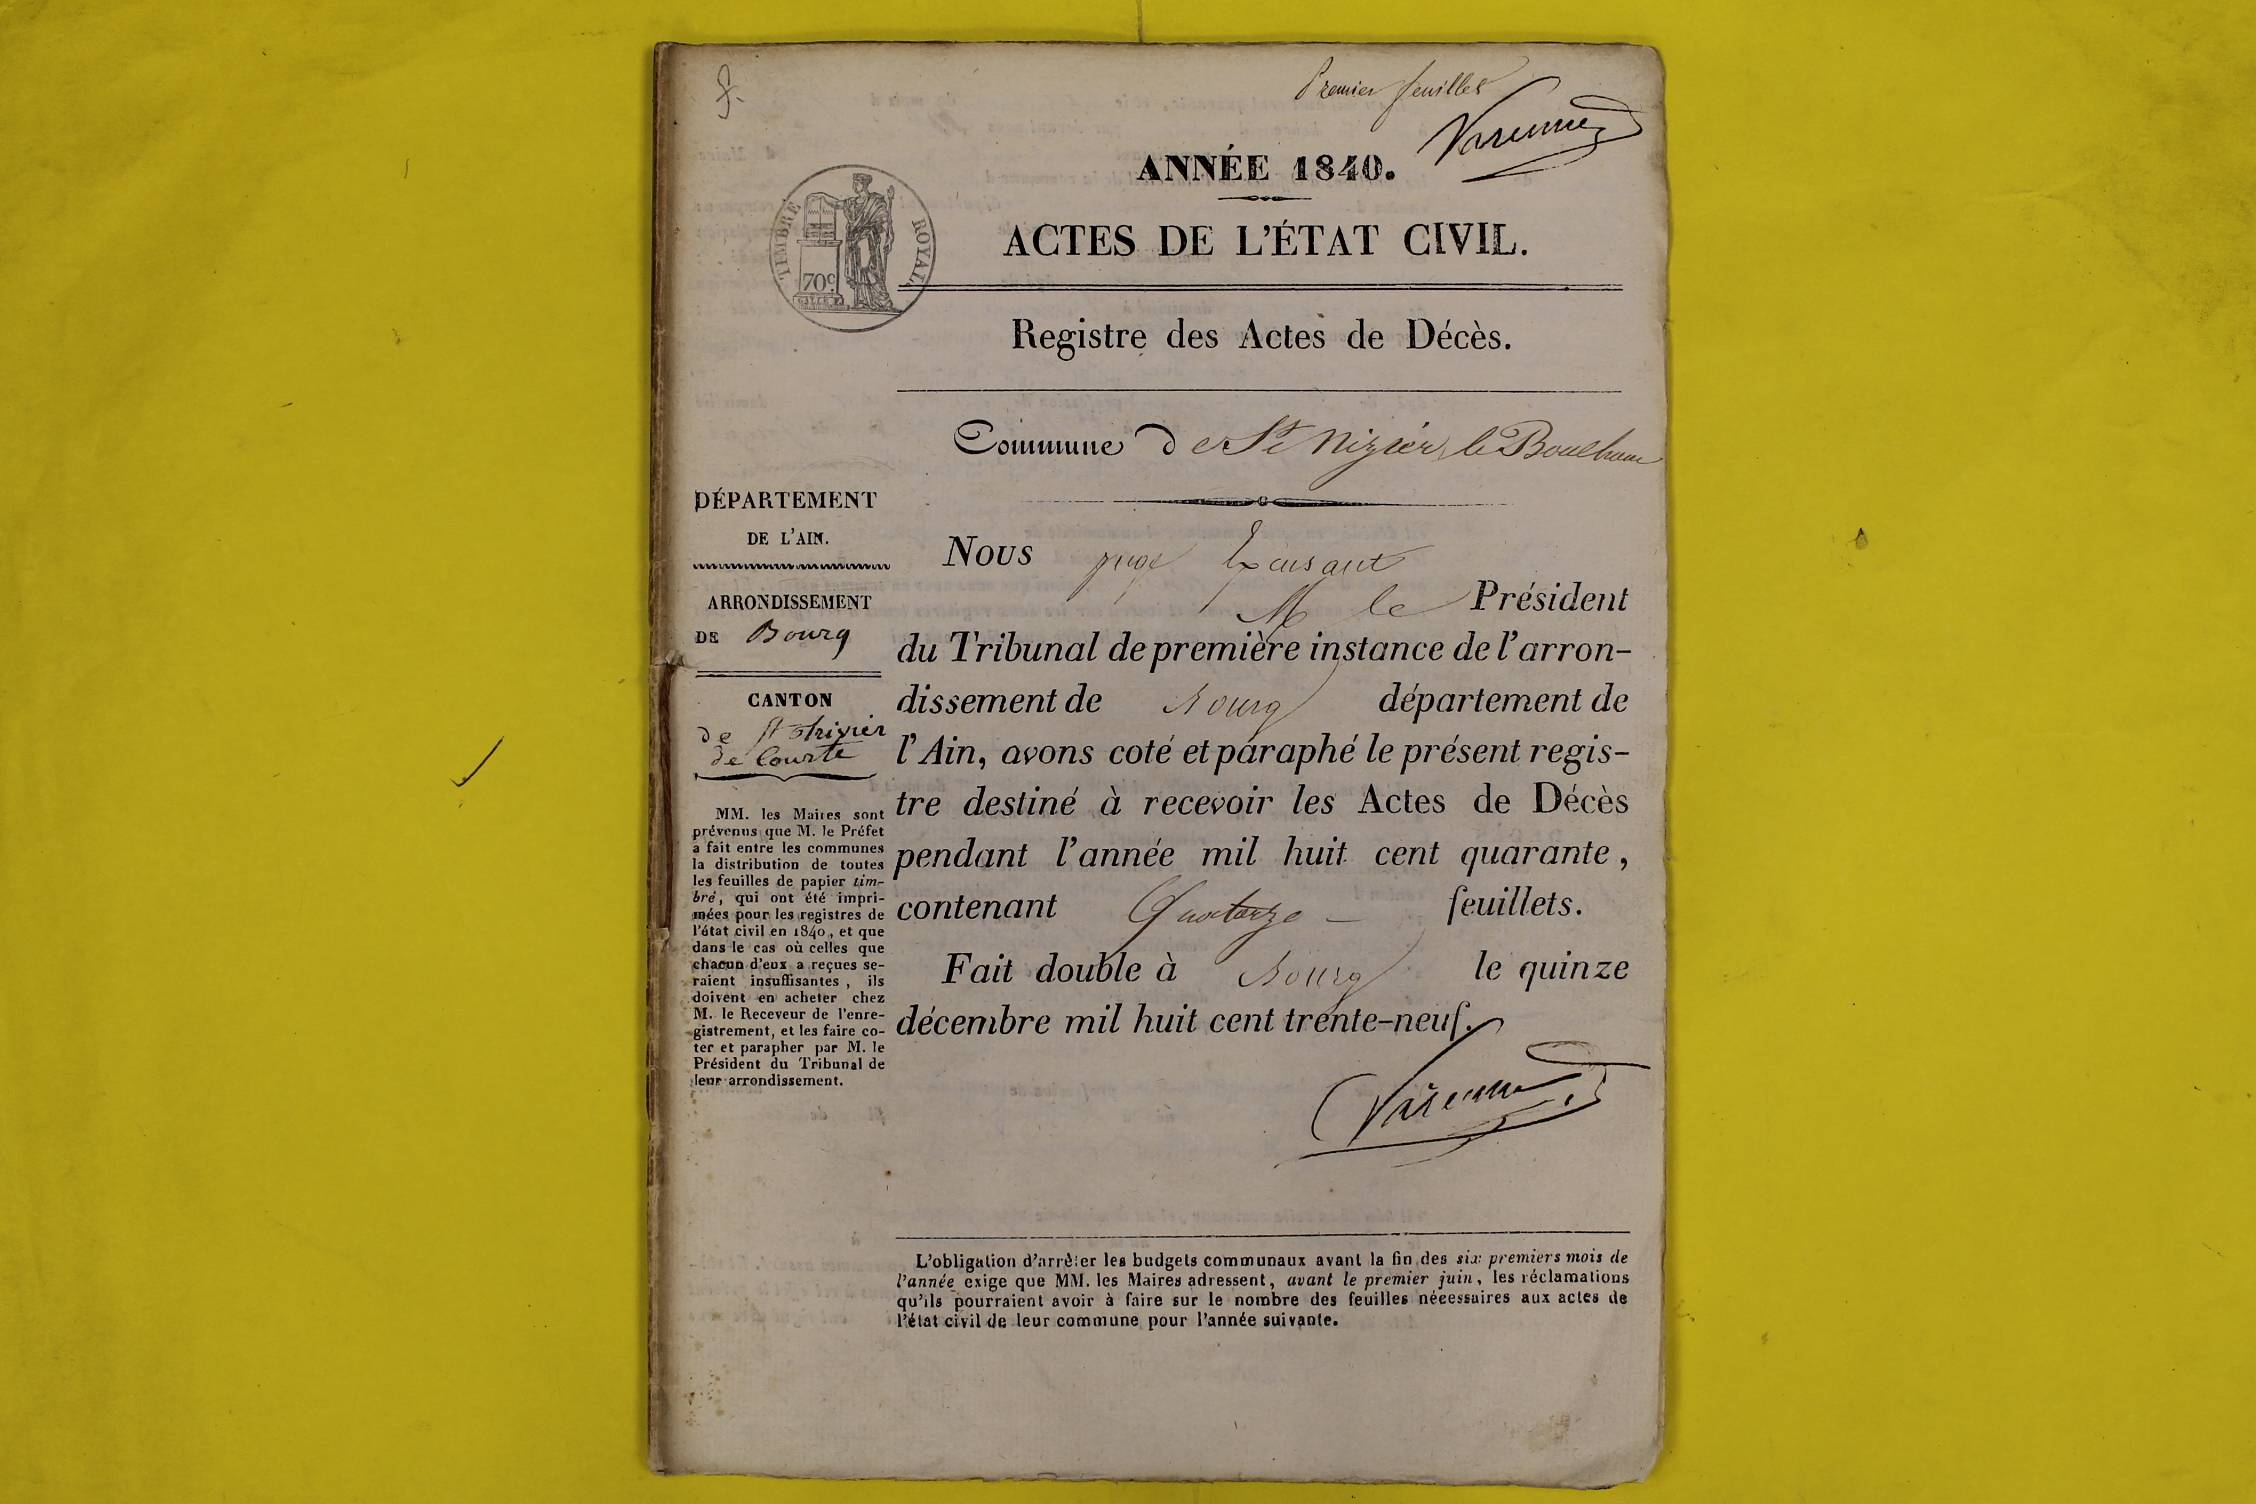 Premier feuillet
Varenne
ANNÉE 1840.
TIMBRE ROYAL
70c.
ACTES DE L'ÉTAT CIVIL.
Registre des Actes de Décès.
Commune de St Nizier le Bouchoux
DÉPARTEMENT
DE L'AIN.
ARRONDISSEMENT
DE Bourg
CANTON
de St Trivier
de Courte
MM. les Maires sont
prévenus que M. le Préfet
a fait entre les communes
la distribution de toutes
les feuilles de papier tim-
bré, qui ont été impri-
mées pour les registres de
l'état civil en 1840, et que
dans le cas où celles que
chacun d'eux a reçues se-
raient insuffisantes, ils
doivent en acheter chez
M. le Receveur de l'enre-
gistrement, et les faire co-
ter et parapher par M. le
Président du Tribunal de
leur arrondissement.
Nous juge
M le Président
du Tribunal de première instance de l'arron-
dissement de Bourg département de
l'Ain, avons coté et paraphé le présent regis-
tre destiné à recevoir les Actes de Décès
pendant l'année mil huit cent quarante,
contenant Quatorze feuillets.
Fait double à Bourg le quinze
décembre mil huit cent trente-neuf.
Varenne
L'obligation d'arrêter les budgets communaux avant la fin des six premiers mois de
l'année exige que MM. les Maires adressent, avant le premier juin, les réclamations
qu'ils pourraient avoir à faire sur le nombre des feuilles nécessaires aux actes de
l'état civil de leur commune pour l'année suivante.